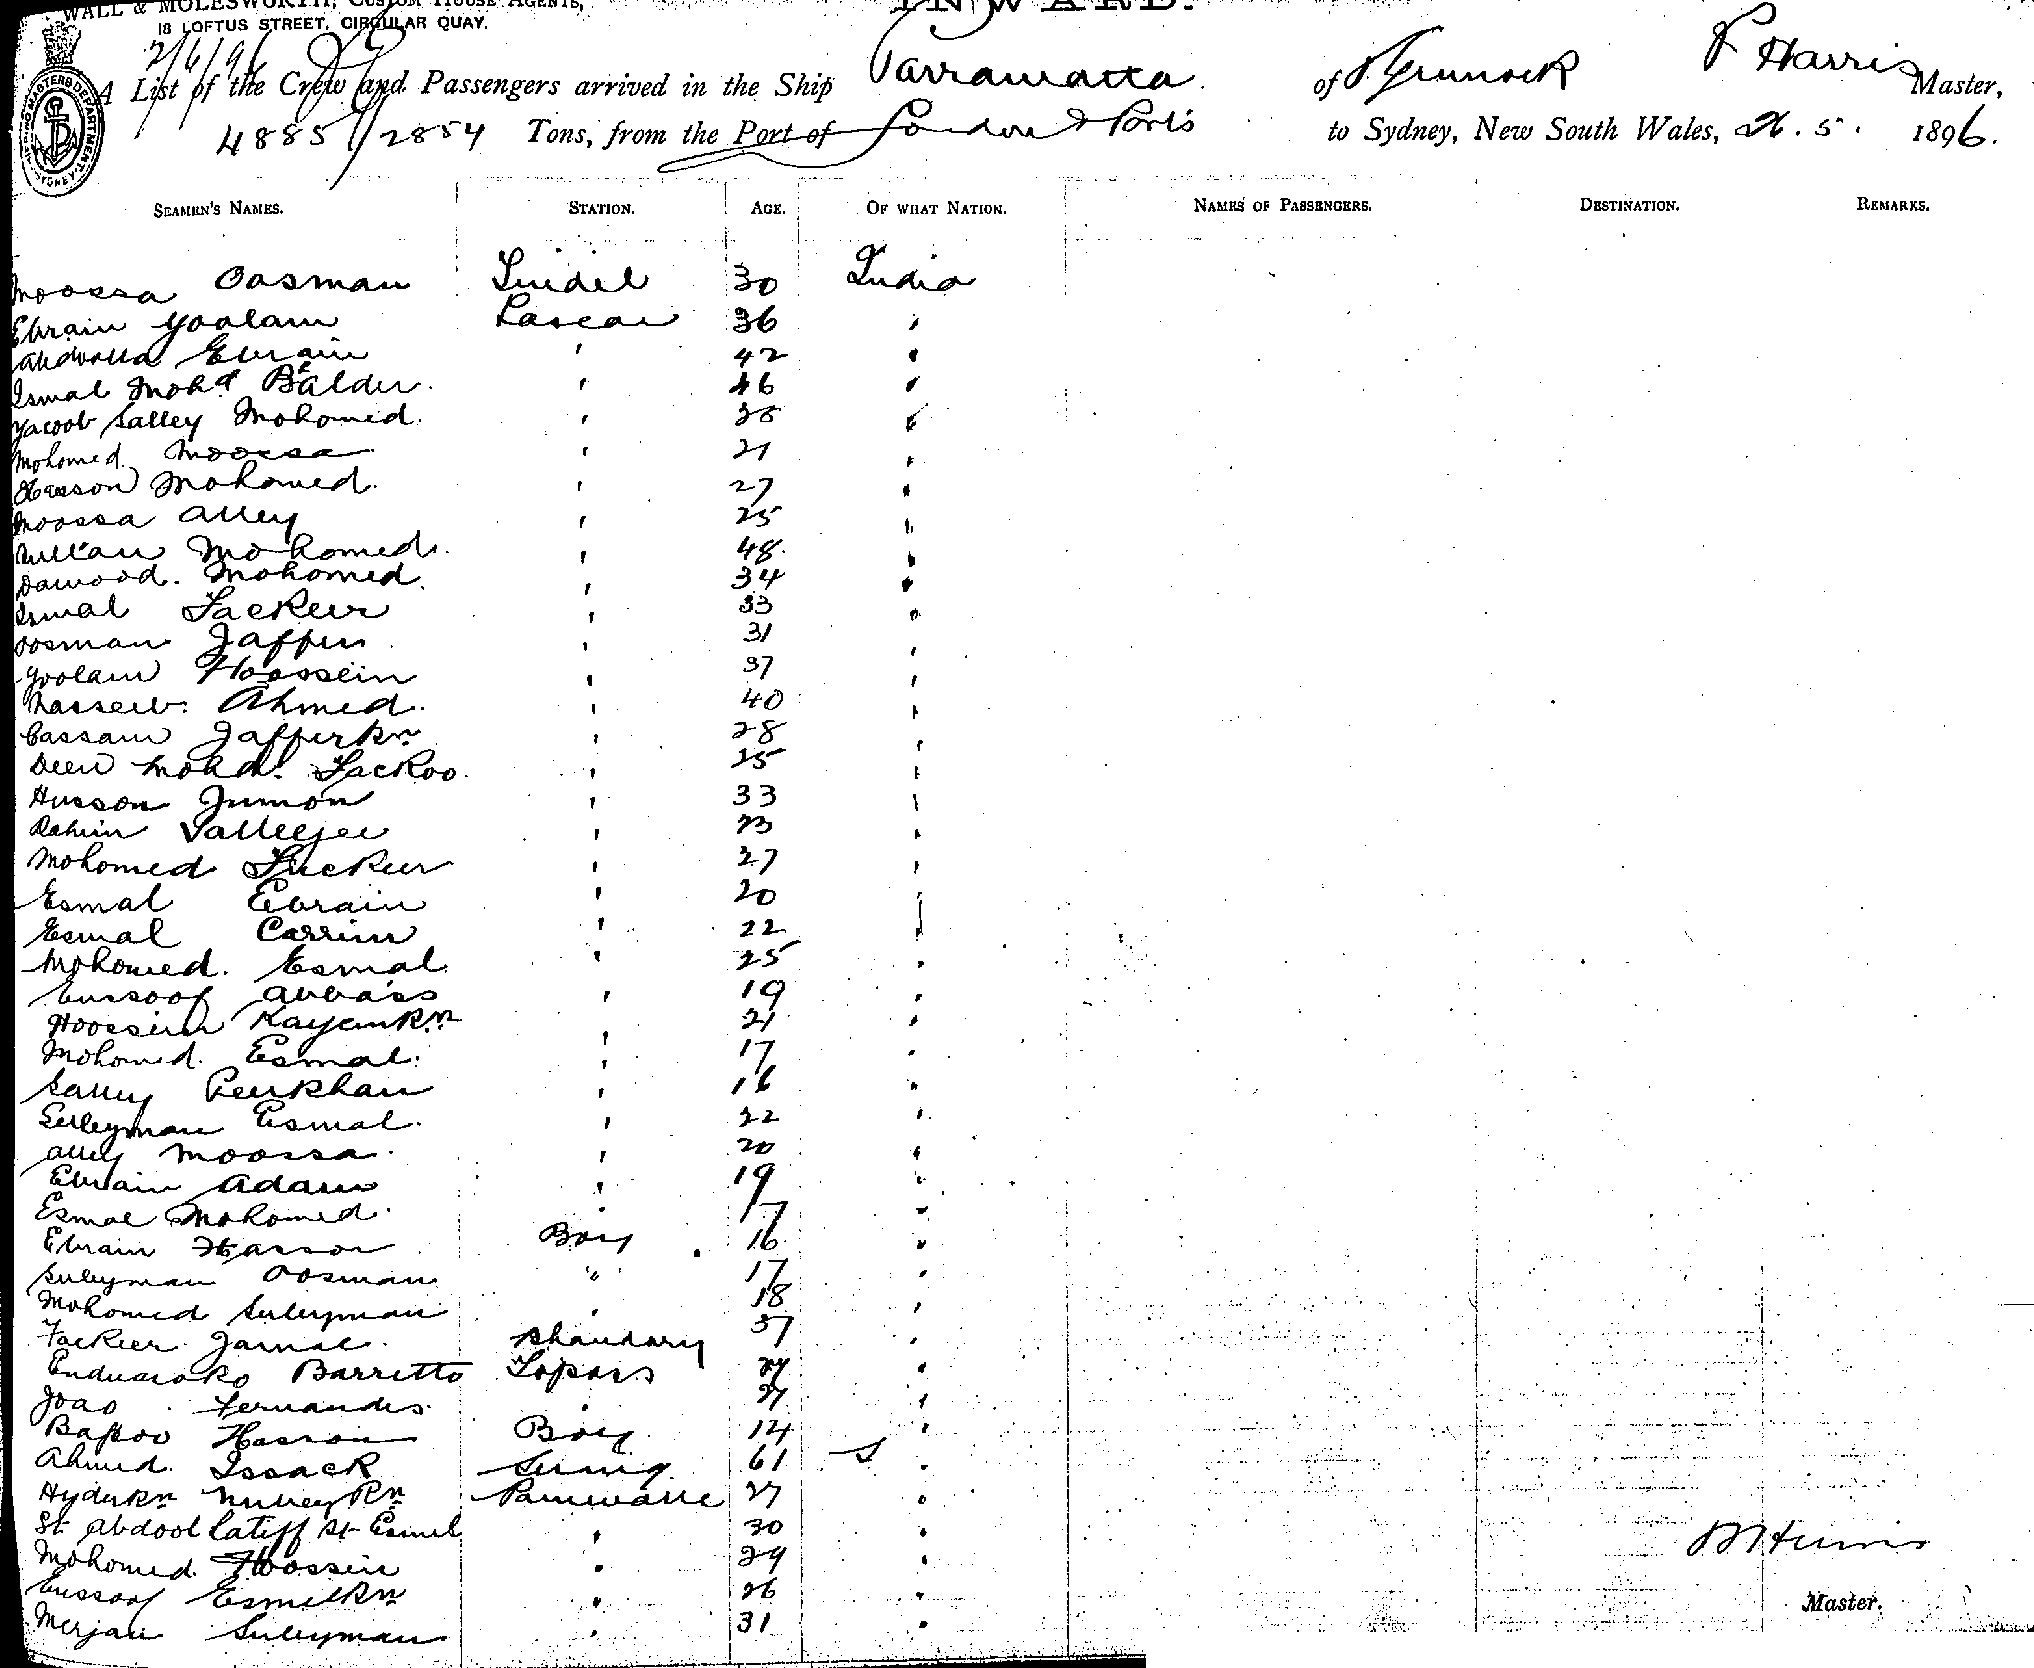 WALL & MOLESWORTH, CUSTOM HOUSE AGENTS,
18 LOFTUS STREET, CIRCULAR QUAY.
INWARD.
2/6/96
A List of the Crew and Passengers arrived in the Ship Parramatta of Greenock P Harris Master,
4885/2854 Tons, from the Port of London & Ports to Sydney, New South Wales, 5. 1896.
SEAMEN'S NAMES. STATION. AGE. OF WHAT NATION. NAMES OF PASSENGERS. DESTINATION. REMARKS.
Moossa Oosman 30 India
Ebrain Goolam Lascar 36 "
Abdoolla Ebrain " 42 "
Ismal Mohd Balder " 46 "
Yacoob Salley Mohomed " "
Mohomed Moossa " 21 "
Hasson Mohomed " 27 "
Moossa Alley " 25 "
Sultan Mohomed " 48 "
Dawood Mohomed " 34 "
Ismal Fackeer " 33 "
Oosman Jaffer " 31 "
Goolam Hoossein " 37 "
Ahmed " 40 "
Cassam Jafferkn " 28 "
Deen Mohd. Fackoo " 25 "
Husson Jumon " 33 "
Rahim Valleejee " 23 "
Mohomed Fuckeer " 27 "
Esmal Ebrain " 20 "
Esmal Carrim " 22 "
Mohomed Esmal " 25 "
Eussoof Abbass " 19 "
Hoossein Kayamkn " 21 "
Mohomed Esmal " 17 "
Salley Peerkhan " 16 "
Suleyman Esmal " 22 "
Alley Moossa " 20 "
Ebrain Adam " 19 "
Esmal Mohomed " 17 "
Ebrain Hasson Boy 16 "
Suleyman Oosman " 17 "
Mohomed Suleyman " 18 "
Fackeer Jamal Bhandary 37 "
Barretto Topass "
Joao Fernandes " "
Bapoo Hasson Boy 14 "
Ahmed Issack Serang 61 "
Hyderkn 27 "
St Abdool Latiff St Esmel " 30 "
Mohomed Hoossein " 29 "
Eussoof Esmelkn " 26 "
Merjan Suleyman " 31 "
Master.